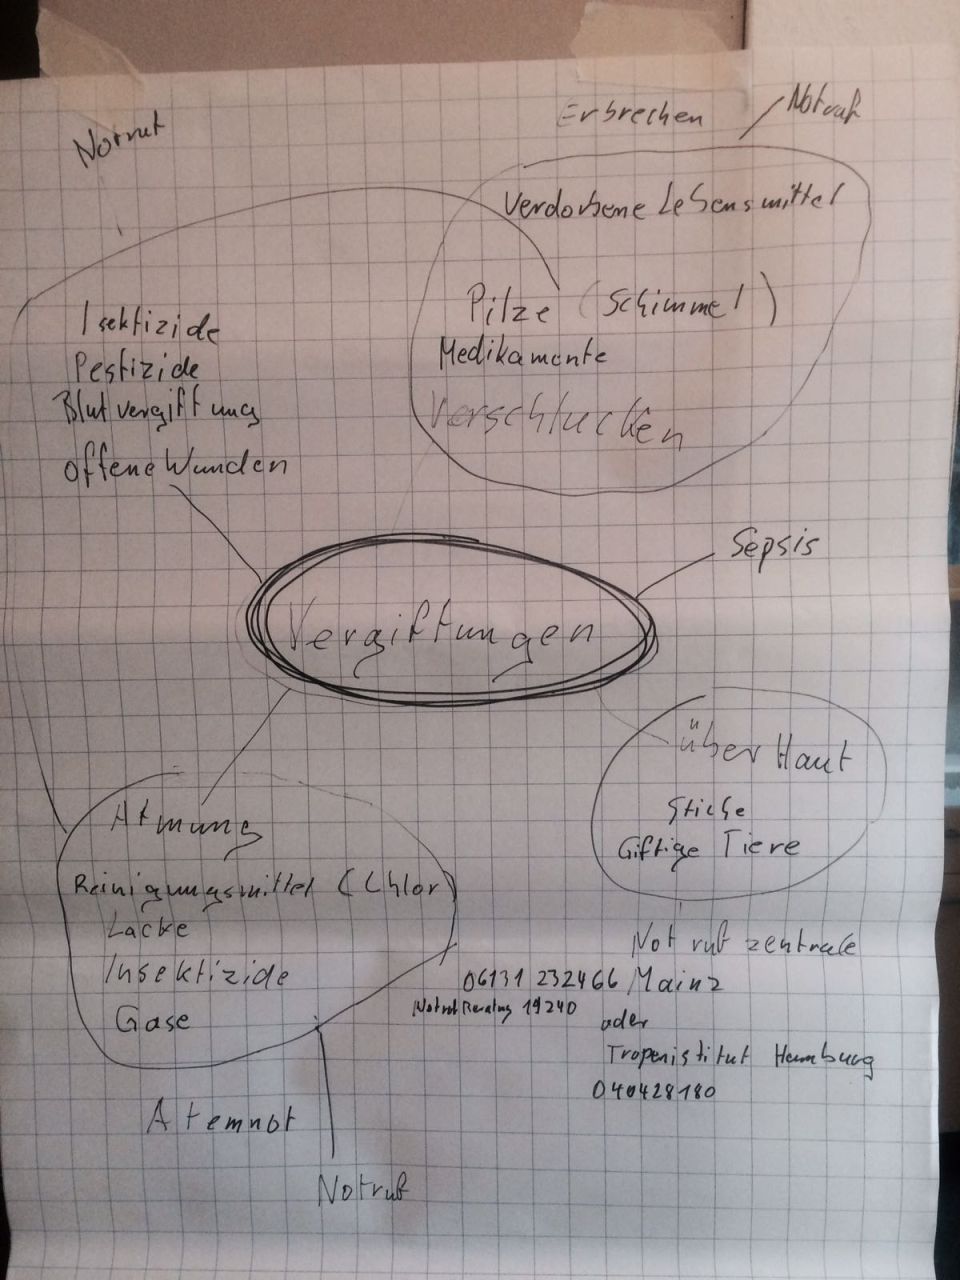 Notruf
Erbrechen
Notruf
Verdorbene Lebensmittel
Pilze (Schimmel)
Medikamente
Verschlucken
Isektizide
Pestizide
Blutvergiftung
offene Wunden
Sepsis
Vergiftungen
über Haut
Stiche
Giftige Tiere
Atmung
Reinigungsmittel (Chlor)
Lacke
Insektizide
Gase
Notrufzentrale
06131 232466 Mainz
Notruf Beratung 19240
oder
Tropenistitut Hamburg
040428180
Atemnot
Notruf